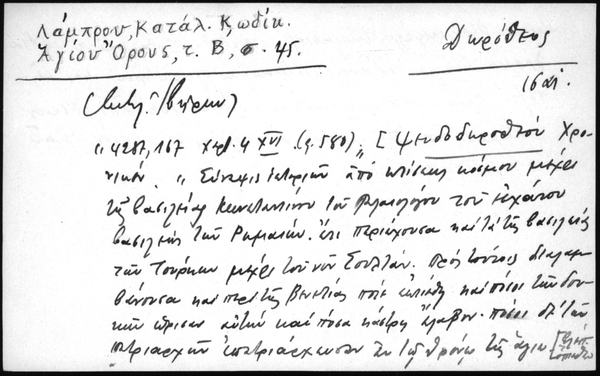 Λάμπρου, Κατάλ. Κωδίκ.
Ἁγίου Ὄρους, τ. Β, σ. 45.
Δωρόθεος
16 αἰ.
(Μονή Ἰβήρων)
"4287, 167 χαρτ. 4 XVI (φ. 580)„ [Ψευδοδωροθέου Χρο-
νικόν. „ Σύνοψις ἱστοριῶν ἀπὸ κτίσεως κόσμου μέχρι
τῆς βασιλείας Κωνσταντίνου τοῦ Παλαιολόγου τοῦ ἐσχάτου
βασιλέως τῶν Ρωμαίων. ἔτι περιέχουσα καὶ τὰ τῆς βασιλείας
τῶν Τούρκων μέχρι τοῦ νῦν Σουλτάν. πρὸς τούτοις διαλαμ-
βάνουσα καὶ περὶ τῆς Βενετίας πότε ἐκτίσθη καὶ πόσοι τῶν δου-
κῶν ὥρισαν αὐτὴν καὶ πόσα κάστρη ἔλαβον. πόσοι δὲ τῶν
πατριαρχῶν ἐπατριάρχευσαν ἐν τῷ θρόνῳ τῆς ἁγίου